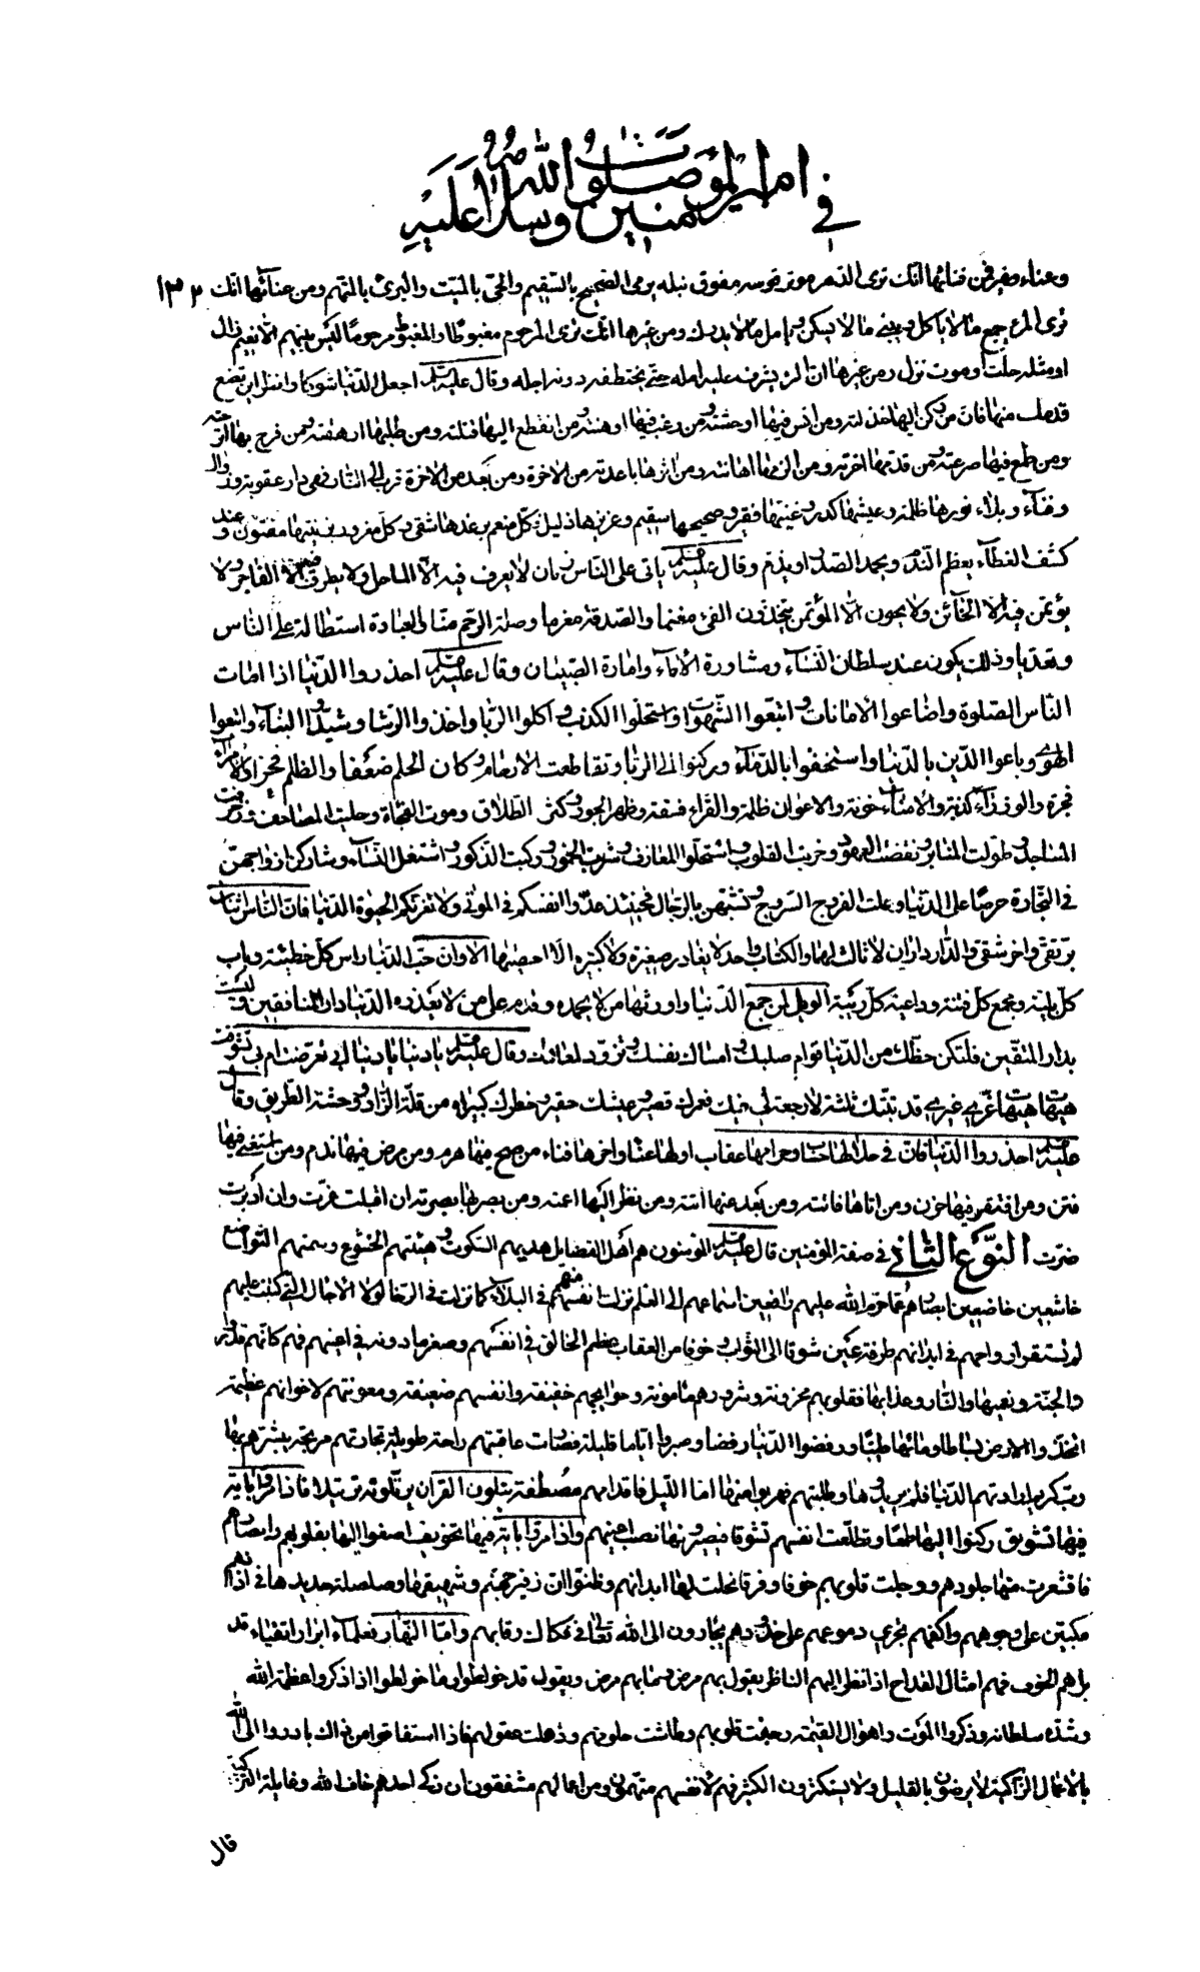 في امير المؤمنين صلوات الله وسلامه عليه
وعناء وغير فمن فنائها انك ترى الدهر موتر قوسه مفوق نبله يرمى الصحيح بالسقيم والحى بالميت والبرئ بالمتهم ومن عنائها انك ١٣٢
ترى المرء يجمع مالا ياكل ويبنى مالا يسكن ويامل مالا يدرك ومن غيرها انك ترى المرحوم مغبوطا والمغبوط مرحوما ليس بينهم الا نعيم زال
او مثله حلت وموت نزل ومن غيرها ان المرء يشرف عليه امله حتى يختطفه دونه اجله وقال عليه السلم اجعل الدنيا شوكا وانظر اين تضع
قدمك منها فان من ركن اليها خذلته ومن انس فيها اوحشته ومن رغب فيها اوهنته ومن انقطع اليها قتلته ومن طلبها ارهقته ومن فرح بها اترحته
ومن طمع فيها صرعته ومن قدمها اخرته ومن الزمها اهانته ومن اثرها باعدته من الاخرة ومن بعد من الاخرة قرب الى النار فهى دار عقوبة وزوال
وفناء وبلاء نورها ظلمة وعيشها كدر وغنيها فقير وصحيحها سقيم وعزيزها ذليل فكل منعم برغدها شقى وكل مغرور بزينتها مفتون وعند
كشف الغطاء يعظم الندم ويحمد الصدر او يذم وقال عليه السلم ياتى على الناس زمان لا يعرف فيه الا الماحل ولا يظرف فيه الا الفاجر ولا
يؤتمن فيه الا الخائن ولا يخون الا المؤتمن يتخذون الفئ مغنما والصدقة مغرما وصلة الرحم منا والعبادة استطالة على الناس
وتعديا وذلك يكون عند سلطان النساء ومشاورة الاماء وامارة الصبيان وقال عليه السلم احذروا الدنيا اذا امات
الناس الصلوة واضاعوا الامانات واتبعوا الشهوات واستحلوا الكذب واكلوا الربا واخذوا الرشا وشيدوا البناء واتبعوا
الهوى وباعوا الدين بالدنيا واستخفوا بالدماء وركنوا الى الربا وتقاطعت الارحام وكان الحلم ضعفا والظلم فخرا والامراء
فجرة والوزراء كذبة والامناء خونة والاعوان ظلمة والقراء فسقة وظهر الجور وكثر الطلاق وموت الفجاة وحليت المصاحف وزخرفت
المساجد وطولت المنابر ونقضت العهود وخربت القلوب واستحلوا المعازف وشربت الخمور وركبت الذكور واشتغل النساء وشاركن ازواجهن
في التجارة حرصا على الدنيا وعلت الفروج السروج وتشبهن بالرجال فحينئذ عدوا انفسكم في الموتى ولا تغرنكم الحيوة الدنيا فان الناس اثنان
بر تقى واخر شقى والدار داران لا ثالث لهما والكتاب واحد لا يغادر صغيرة ولا كبيرة الا احصيها الا وان حب الدنيا راس كل خطيئة وباب
كل بلية ومجمع كل فتنة وداعية كل ريبة الويل لمن جمع الدنيا واورثها من لا يحمده وقدم على من لا يعذره الدنيا دار المنافقين وليست
بدار المتقين فلتكن حظك من الدنيا قوام صلبك وامساك نفسك وتزود لمعادك وقال عليه السلم يا دنيا يا دنيا ابي تعرضت ام بى تشوقت
هيهات هيهات غرى غيرى قد بتتك ثلثة لا رجعة لى فيك فعمرك قصير وعيشك حقير وخطرك كبير اه من قلة الزاد ووحشة الطريق وقال
عليه السلم احذروا الدنيا فان في حلالها حساب وحرامها عقاب اولها عناء واخرها فناء من صح فيها هرم ومن مرض فيها ندم ومن استغنى فيها
فتن ومن افتقر فيها حزن ومن اتاها فاتته ومن بعد عنها اتته ومن نظر اليها اعمته ومن بصر بها بصرته ان اقبلت غرت وان ادبرت
ضرت النوع الثانى في صفة المؤمنين قال عليه السلم المؤمنون هم اهل الفضايل هديهم السكوت وهيئتهم الخشوع وسمتهم التواضع
خاشعين خاضعين ابصارهم عما حرم الله عليهم رافعين اسماعهم الى العلم نزلت انفسهم منهم في البلاء كما نزلت في الرخا لولا الاجال التى كتبت عليهم
لم تستقر ارواحهم في ابدانهم طرفة عين شوقا الى الثواب وخوفا من العقاب عظم الخالق في انفسهم وصغر ما دونه في اعينهم فهم كانهم قد راوا
والجنة ونعيمها والنار وعذابها فقلوبهم محزونة وشرورهم مامونة وحوايجهم خفيفة وانفسهم ضعيفة ومعونتهم لاخوانهم عظيمة
اتخذوا الارض بساطا وماءها طيبا ورفضوا الدنيا رفضا وصبروا اياما قليلة فصارت عاقبتهم راحة طويلة تجارتهم مربحة يبشرهم بها
رب كريم ارادتهم الدنيا فلم يريدوها وطلبتهم فهربوا منها اما الليل فاقدامهم مصطفة يتلون القران يرتلونه ترتيلا فاذا مروا باية
فيها تشويق ركنوا اليها طمعا وتطلعت انفسهم تشوقا فيصيرونها نصب اعينهم واذا مروا باية فيها تخويف اصغوا اليها بقلوبهم وابصارهم
فاقشعرت منها جلودهم ووجلت قلوبهم خوفا وفرقا نحلت لها ابدانهم وظنوا ان زفير جهنم وشهيقها وصلصلة حديدها في اذانهم
مكبين على وجوههم واكفهم تجرى دموعهم على خدودهم يجارون الى الله تعالى في فكاك رقابهم واما النهار فعلماء ابرار اتقياء قد
براهم الخوف فهم امثال القداح اذا نظر اليهم الناظر يقول بهم مرض وما بهم مرض ويقول قد خولطوا وما خولطوا اذا ذكروا عظمة الله
وشدة سلطانه وذكروا الموت واهوال القيمة رجفت قلوبهم وطاشت حلومهم وذهلت عقولهم فاذا استفاقوا من ذلك بادروا الى الله
بالاعمال الزاكية لا يرضون بالقليل ولا يستكثرون الكثير فهم لانفسهم متهمون ومن اعمالهم مشفقون ان زكى احدهم خاف الله وغايلة التزكية
قال